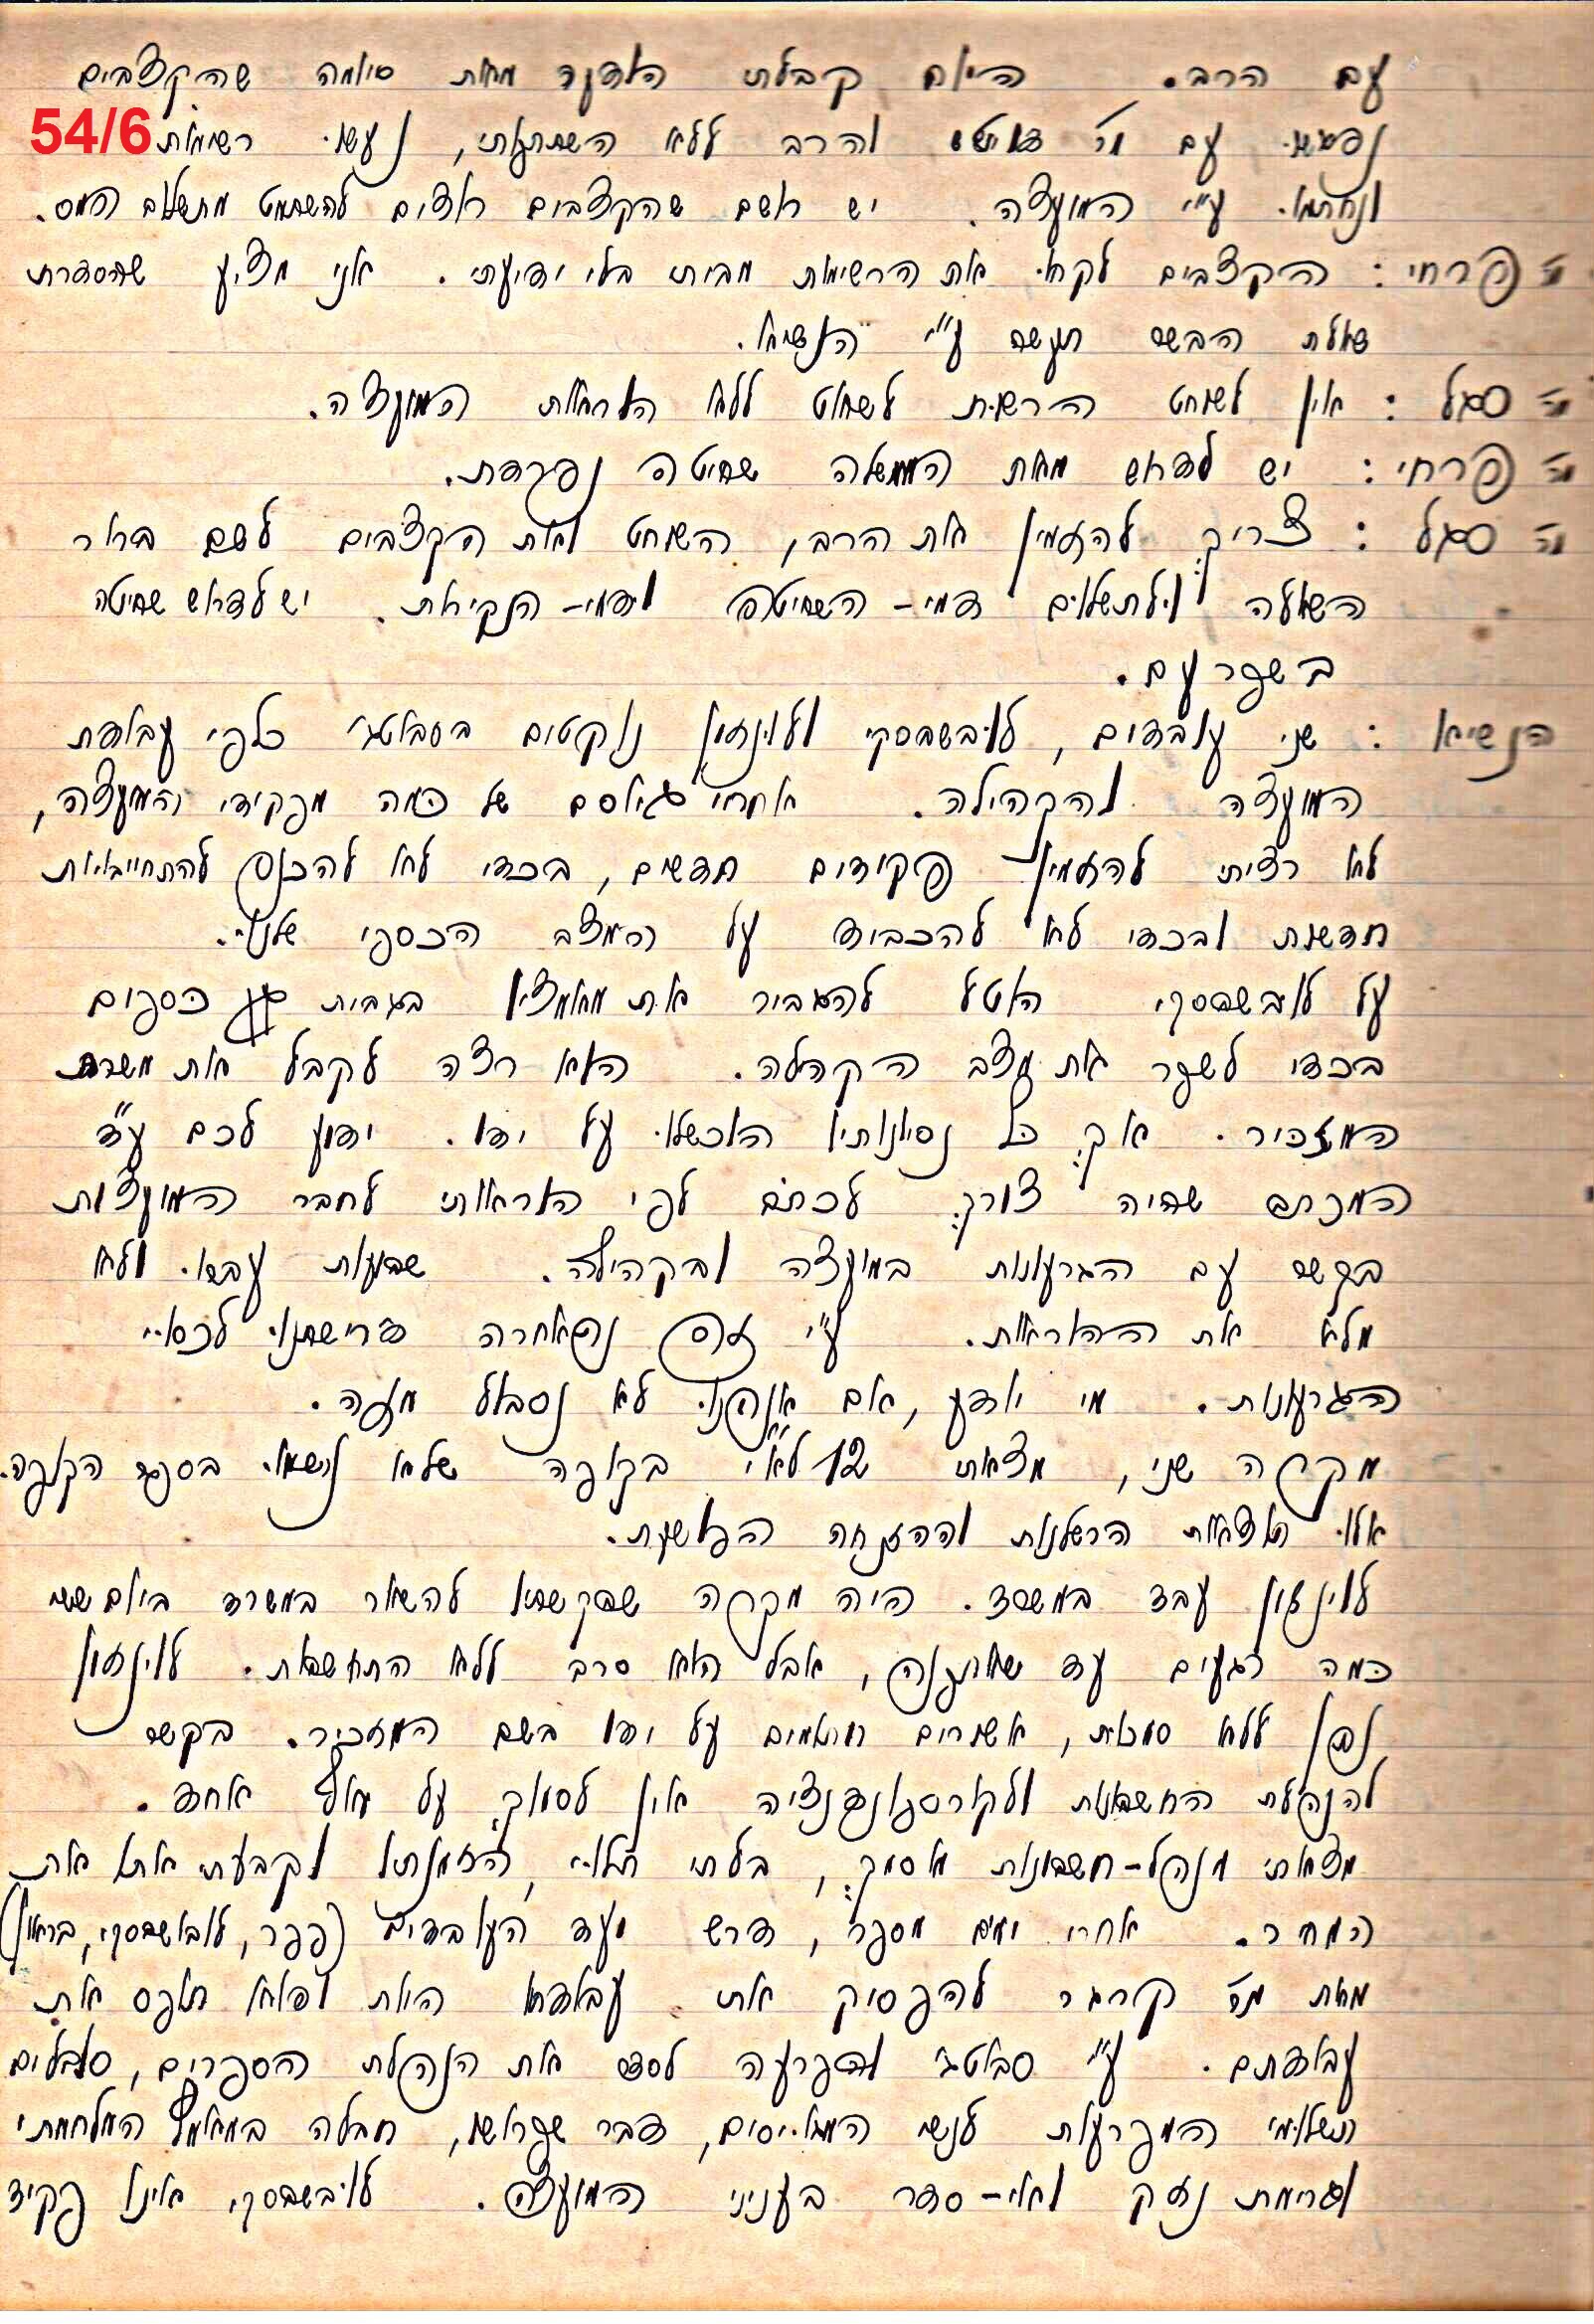 עם הרב. היום קבלתי הודעה מאת סיומה שהקצבים
54/6
נפגשו עם מר והרב ללא השתתפותי, נעשו רשימות
ונחתמו. ע״י המועצה. יש חשש שהקצבים רוצים להשתמט מתשלום המס.
מר פרחי : הקצבים לקחו את הרשימות מביתי בלי ידיעתי. אני מציע שהסדרת
שאלת הבשר תעשה ע״י הנשיא.
מר סגל : אין לשוחט הרשות לשחוט ללא הוראות המועצה.
מר פרחי : יש לדרוש מאת הממשלה שחיטה נפרדת.
מר סגל : צריך להזמין את הרב, השוחט ואת הקצבים לשם ברור
השאלה ולתשלום דמי-השחיטה ודמי-הנקיאות. יש לדרוש שחיטה
בשפרעם.
הנשיא : שני עובדים, לובשבסקי ולוינזון נוקטים בסבוטג׳ כלפי עבודת
המועצה והקהילה. אחרי גיוסם של כמה מפקידי המועצה,
לא רציתי להזמין פקידים חדשים, בכדי לא להכנס להתחייבויות
חדשות ובכדי לא להכביד על המצב הכספי שלנו.
על לובשבסקי הוטל להגביר את מאמציו בגבית כספים
בכדי לשפר את מצב הקהילה. הוא רצה לקבל את משרת
המזכיר. אך כל נסיונותיו הוכשלו על ידו. ידוע לכם ע״ד
המכתב שהיה צורך לכתב לפי הוראותי לחבר המועצות
בקשר עם הגרעונות במועצה ובקהילה. שבועות עברו. ולא
מלא את ההוראות. ע״י זה נתאחרה דרישתנו לכסוי
הגרעונות. מי יודע, אם אנחנו לא נסבול מזה.
מקרה שני, מצאתי 12 לא״י בקופה שלא נרשמו בספר הקופה.
אלו תוצאות הרשלנות וההזנחה הפושעת.
לוינזון עבד במשרד. היה מקרה שבקשתיו להשאר במשרד ביום ששי
כמה רגעים עד שאתפנה, אבל הוא סרב ללא התחשבות. לוינזון
נתן ללא סמכות, אשורים חתומים על ידו בשם המזכיר. בקשר
להנהלת החשבונות ולקורספונדנציה אין לסמוך על אף אחד.
מצאתי מנהל-חשבונות מוסמך, בלתי תלוי, הזמנתיו וקבעתי אתו את
המחיר. אחרי ימים מספר, דרש ועד העובדים (פפר, לובושבסקי, ברזון)
מאת מר קרגר להפסיק את עבודתו היות והוא תופס את
עבודתם. ע״י סבוטג׳ והפרעה לסדר את הנהלת הספרים, סובלים
תשלומי המפרעות לנשי המגויסים, דבר שפרושו, חבלה במאמץ המלחמתי
וגרימת נזק ואי-סדר בעניני המועצה. לובשבסקי, אינו פקיד